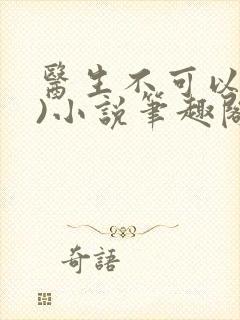 醫生不可以
)小説筆趣閣
奇語